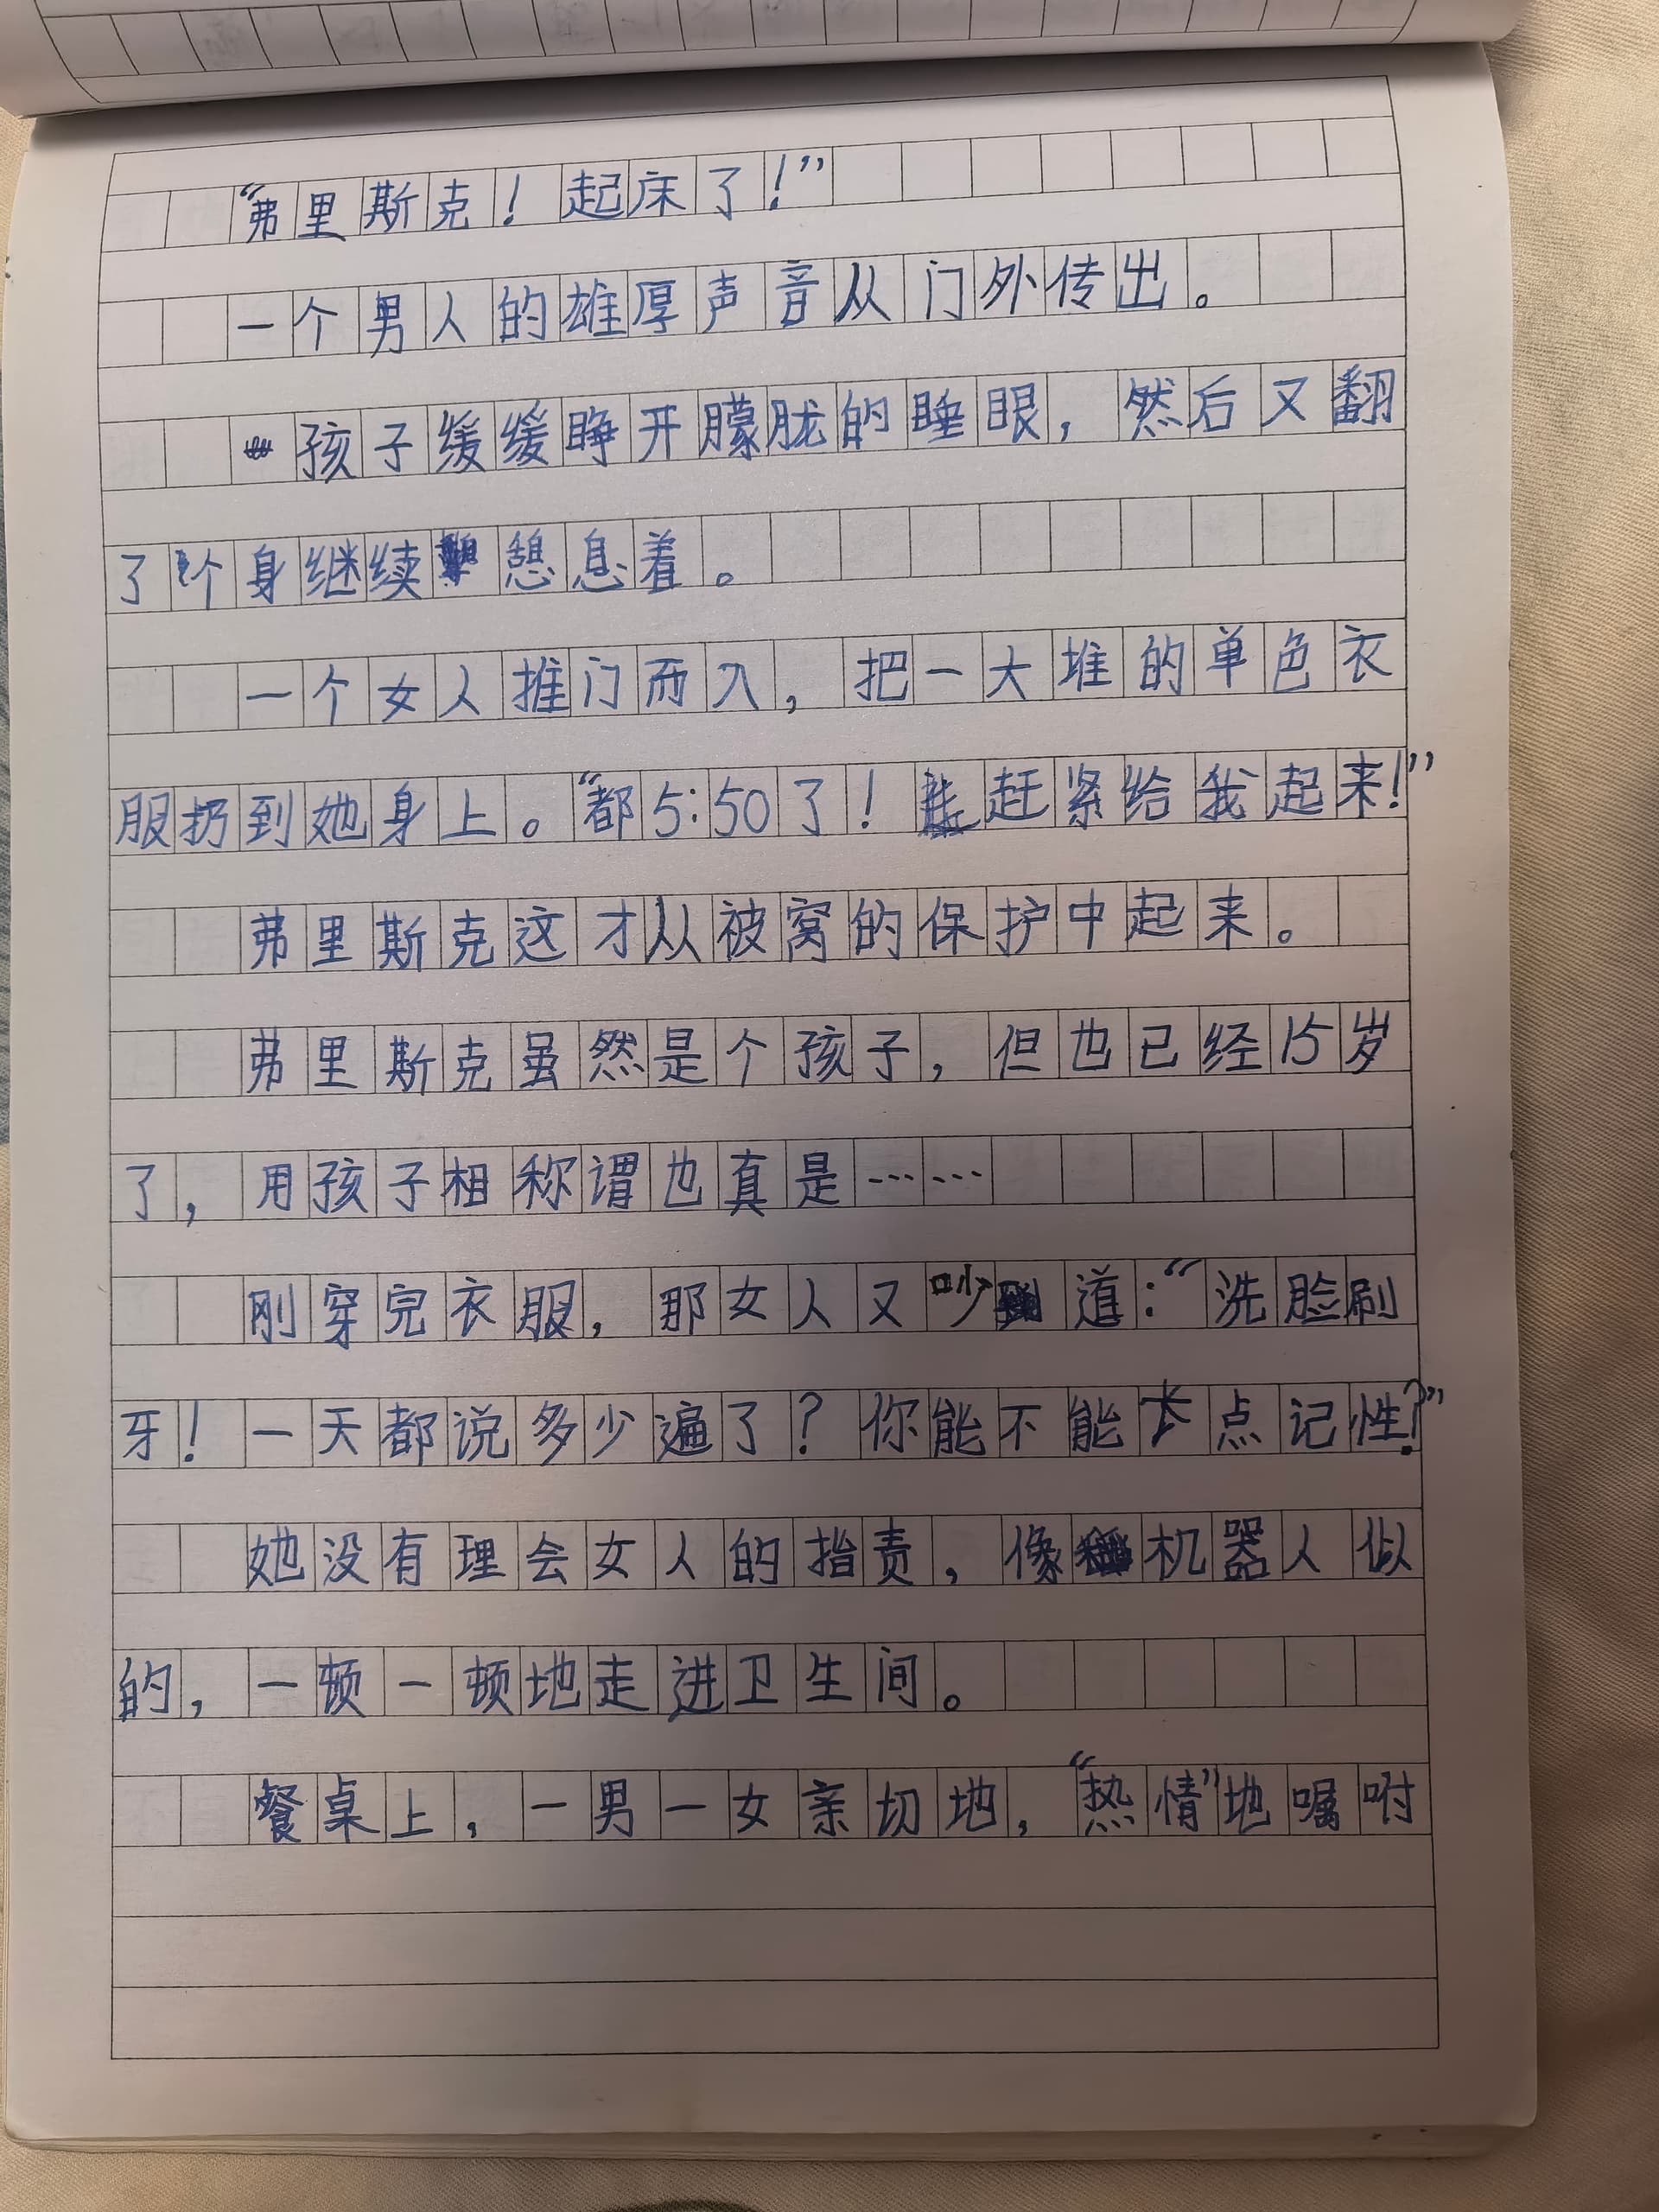 “弗里斯克！起床了！”
一个男人的雄厚声音从门外传出。
孩子缓缓睁开朦胧的睡眼，然后又翻
了个身继续憩息着。
一个女人推门而入，把一大堆的单色衣
服扔到她身上。“都5:50了！赶紧给我起来！”
弗里斯克这才从被窝的保护中起来。
弗里斯克虽然是个孩子，但也已经15岁
了，用孩子相称谓也真是……
刚穿完衣服，那女人又吵道：“洗脸刷
牙！一天都说多少遍了？你能不能长点记性？”
她没有理会女人的指责，像机器人似
的，一顿一顿地走进卫生间。
餐桌上，一男一女亲切地，“热情”地嘱咐